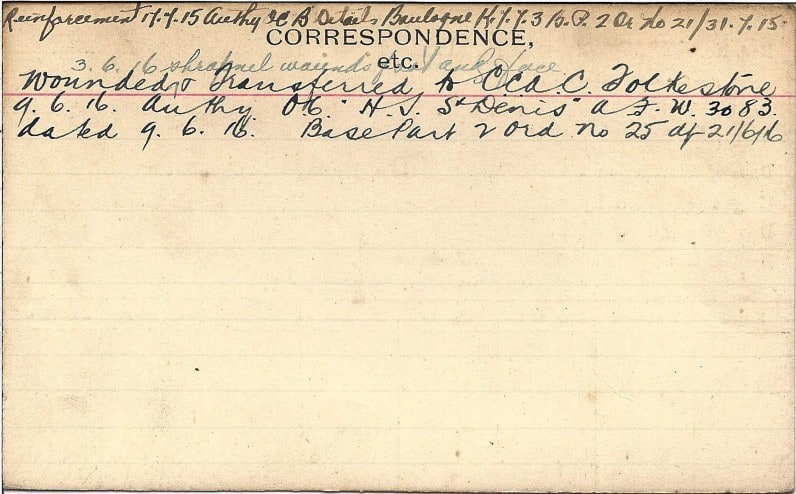 Reinforcement 17.7.15 Authy I C B Details Boulogne K.7.7.3 B.P. 2 Or No 21/31.7.15.
CORRESPONDENCE,
etc.
3.6.16 shrapnel wounds foot and face
Wounded & Transferred to C.C.A.C. Folkestone
9.6.16. Authy. O.C. "H.S. St Denis" A.F.W. 3083.
dated 9.6.16. Base Part 2 Ord. No 25 df 21/6/16